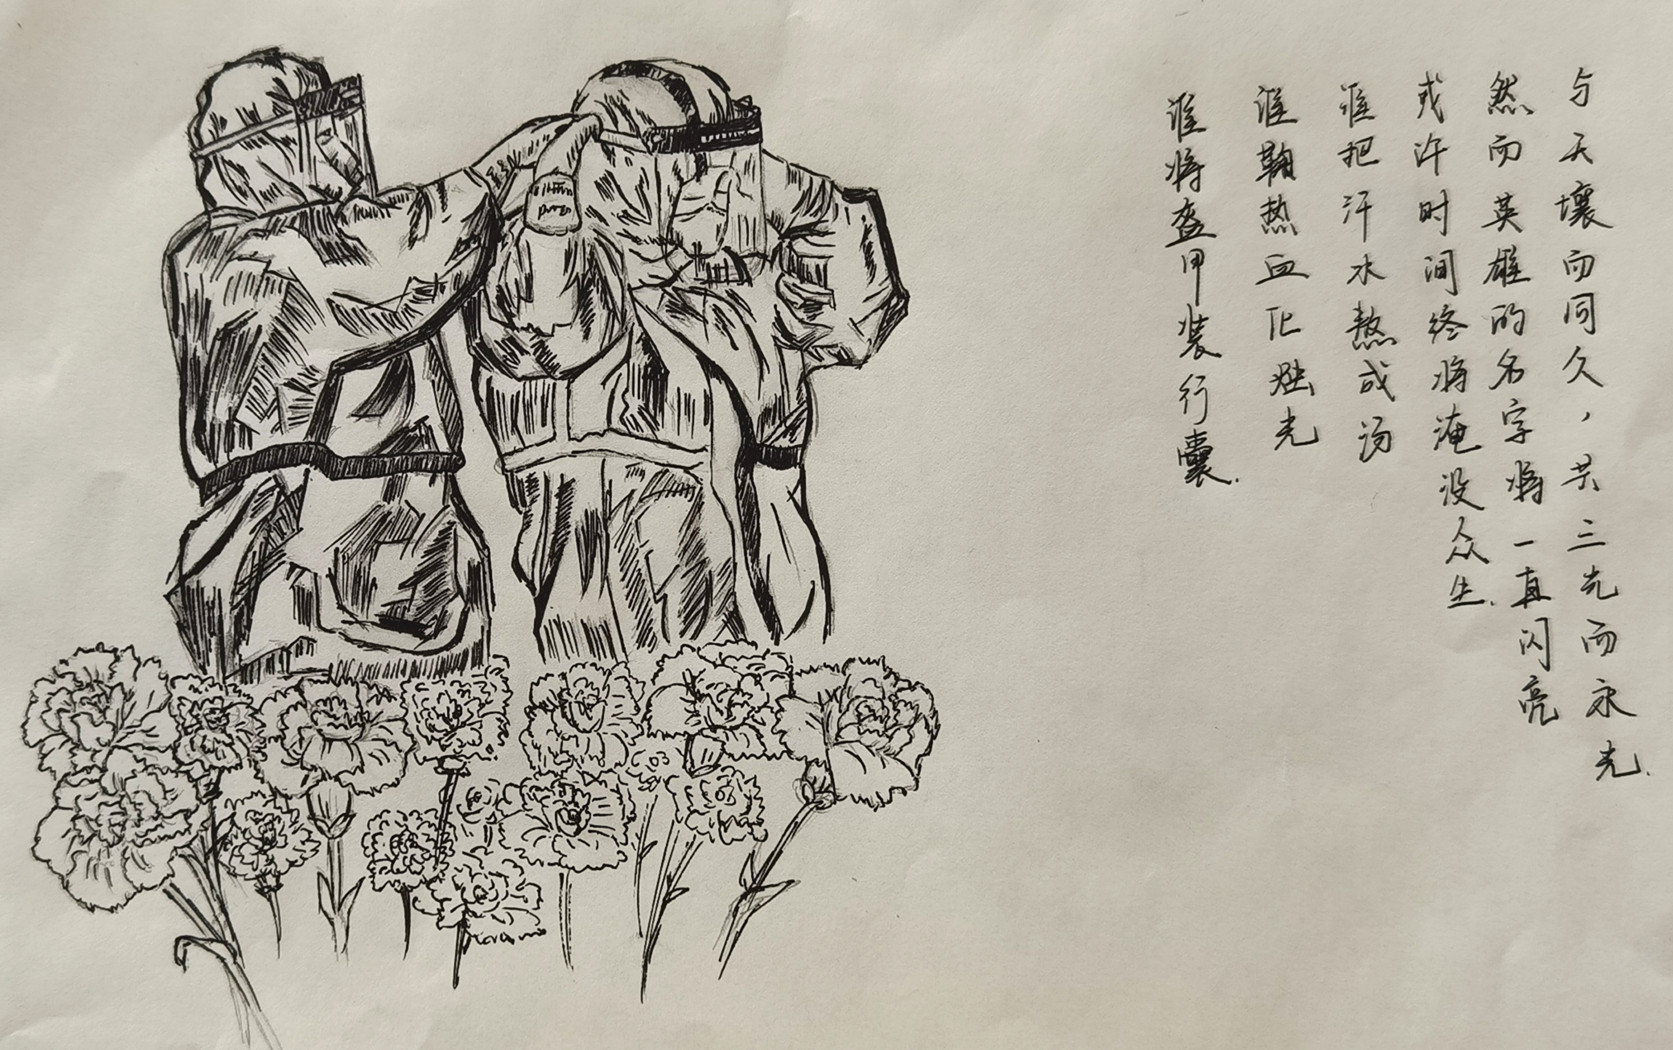 谁将盔甲装行囊.
谁鞠热血化烛光
谁把汗水熬成汤
或许时间终将淹没众生.
然而英雄的名字将一直闪亮
与天壤而同久，共三光而永光.